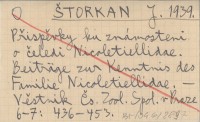 O ŠTORKAN J. 1939.
Příspěvky ku známosteni
o čeledi Nicoletiellidae.
Beiträge zur Kenntnis des
Familie Nicoletiellidae.—
Věstník Čs. Zool. Spol. v Praze
6-7: 436-453.